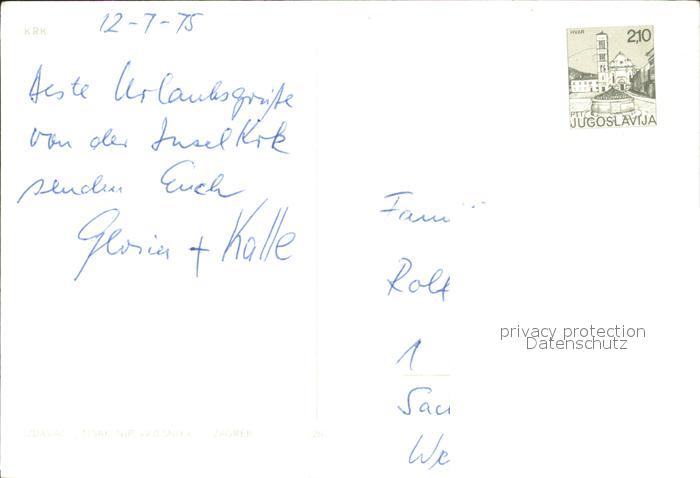 KRK
12-7-75
Beste Urlaubsgrüße
von der Insel Krk
senden Euch
Gloria + Kalle
HVAR
2,10
PTT
JUGOSLAVIJA
Fami
Rolf
1
privacy protection
Datenschutz
ZAGREB